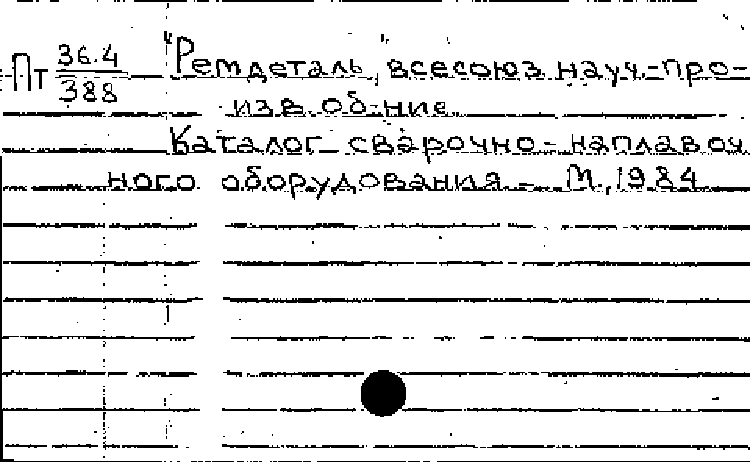 Пт 36.4/388 "Ремдеталь", всесоюз. науч.-про-
изв. об-ние.
Каталог сварочно-наплавоч
ного оборудования. – М., 1984